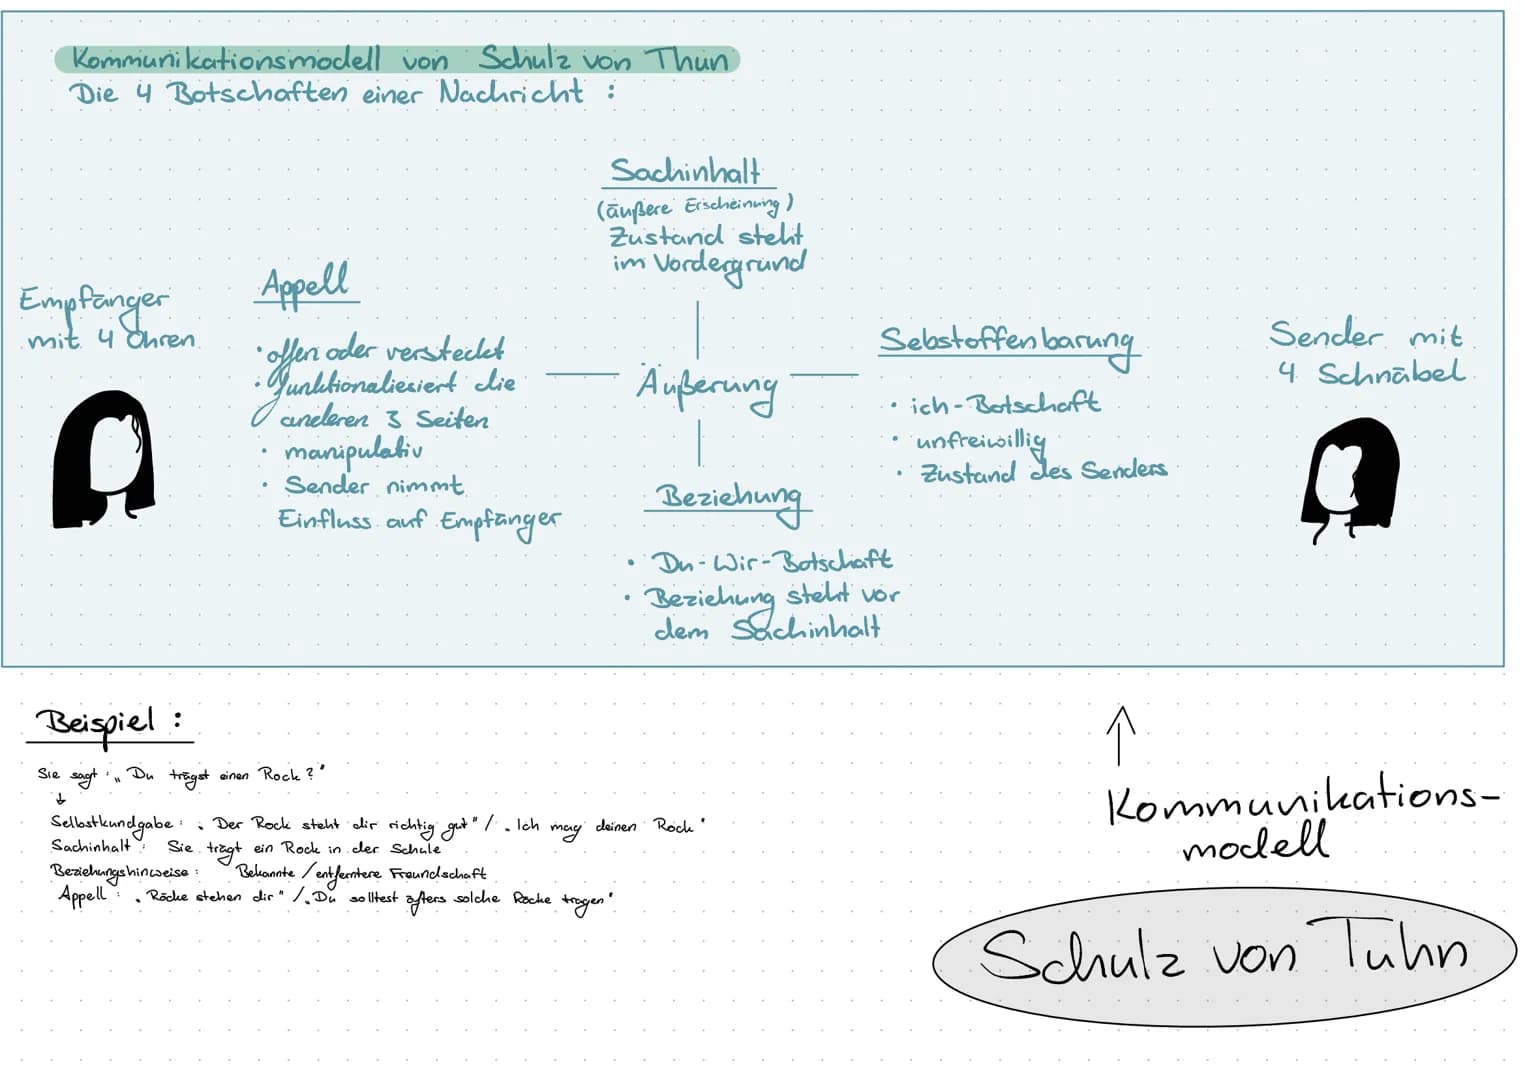 Kommunikationsmodell von Schulz von Thun
Die 4 Botschaften einer Nachricht :
Sachinhalt
(äußere Erscheinung)
Zustand steht
im Vordergrund
Empfänger
mit 4 Ohren
Appell
• offen oder versteckt
• funktionaliesiert die
anderen 3 Seiten
• manipulativ
• Sender nimmt
Einfluss auf Empfänger
Äußerung
Sebstoffenbarung
• ich-Botschaft
• unfreiwillig
• Zustand des Senders
Sender mit
4 Schnäbel
Beziehung
• Du-Wir-Botschaft
• Beziehung steht vor
dem Sachinhalt
Beispiel :
Sie sagt : „Du trägst einen Rock?"
↓
Selbstkundgabe : „Der Rock steht dir richtig gut" / „Ich mag deinen Rock"
Sachinhalt : Sie trägt ein Rock in der Schule
Beziehungshinweise : Bekannte / entferntere Freundschaft
Appell : „Röcke stehen dir" / „Du solltest öfters solche Röcke tragen"
↑
Kommunikations-
modell
Schulz von Tuhn